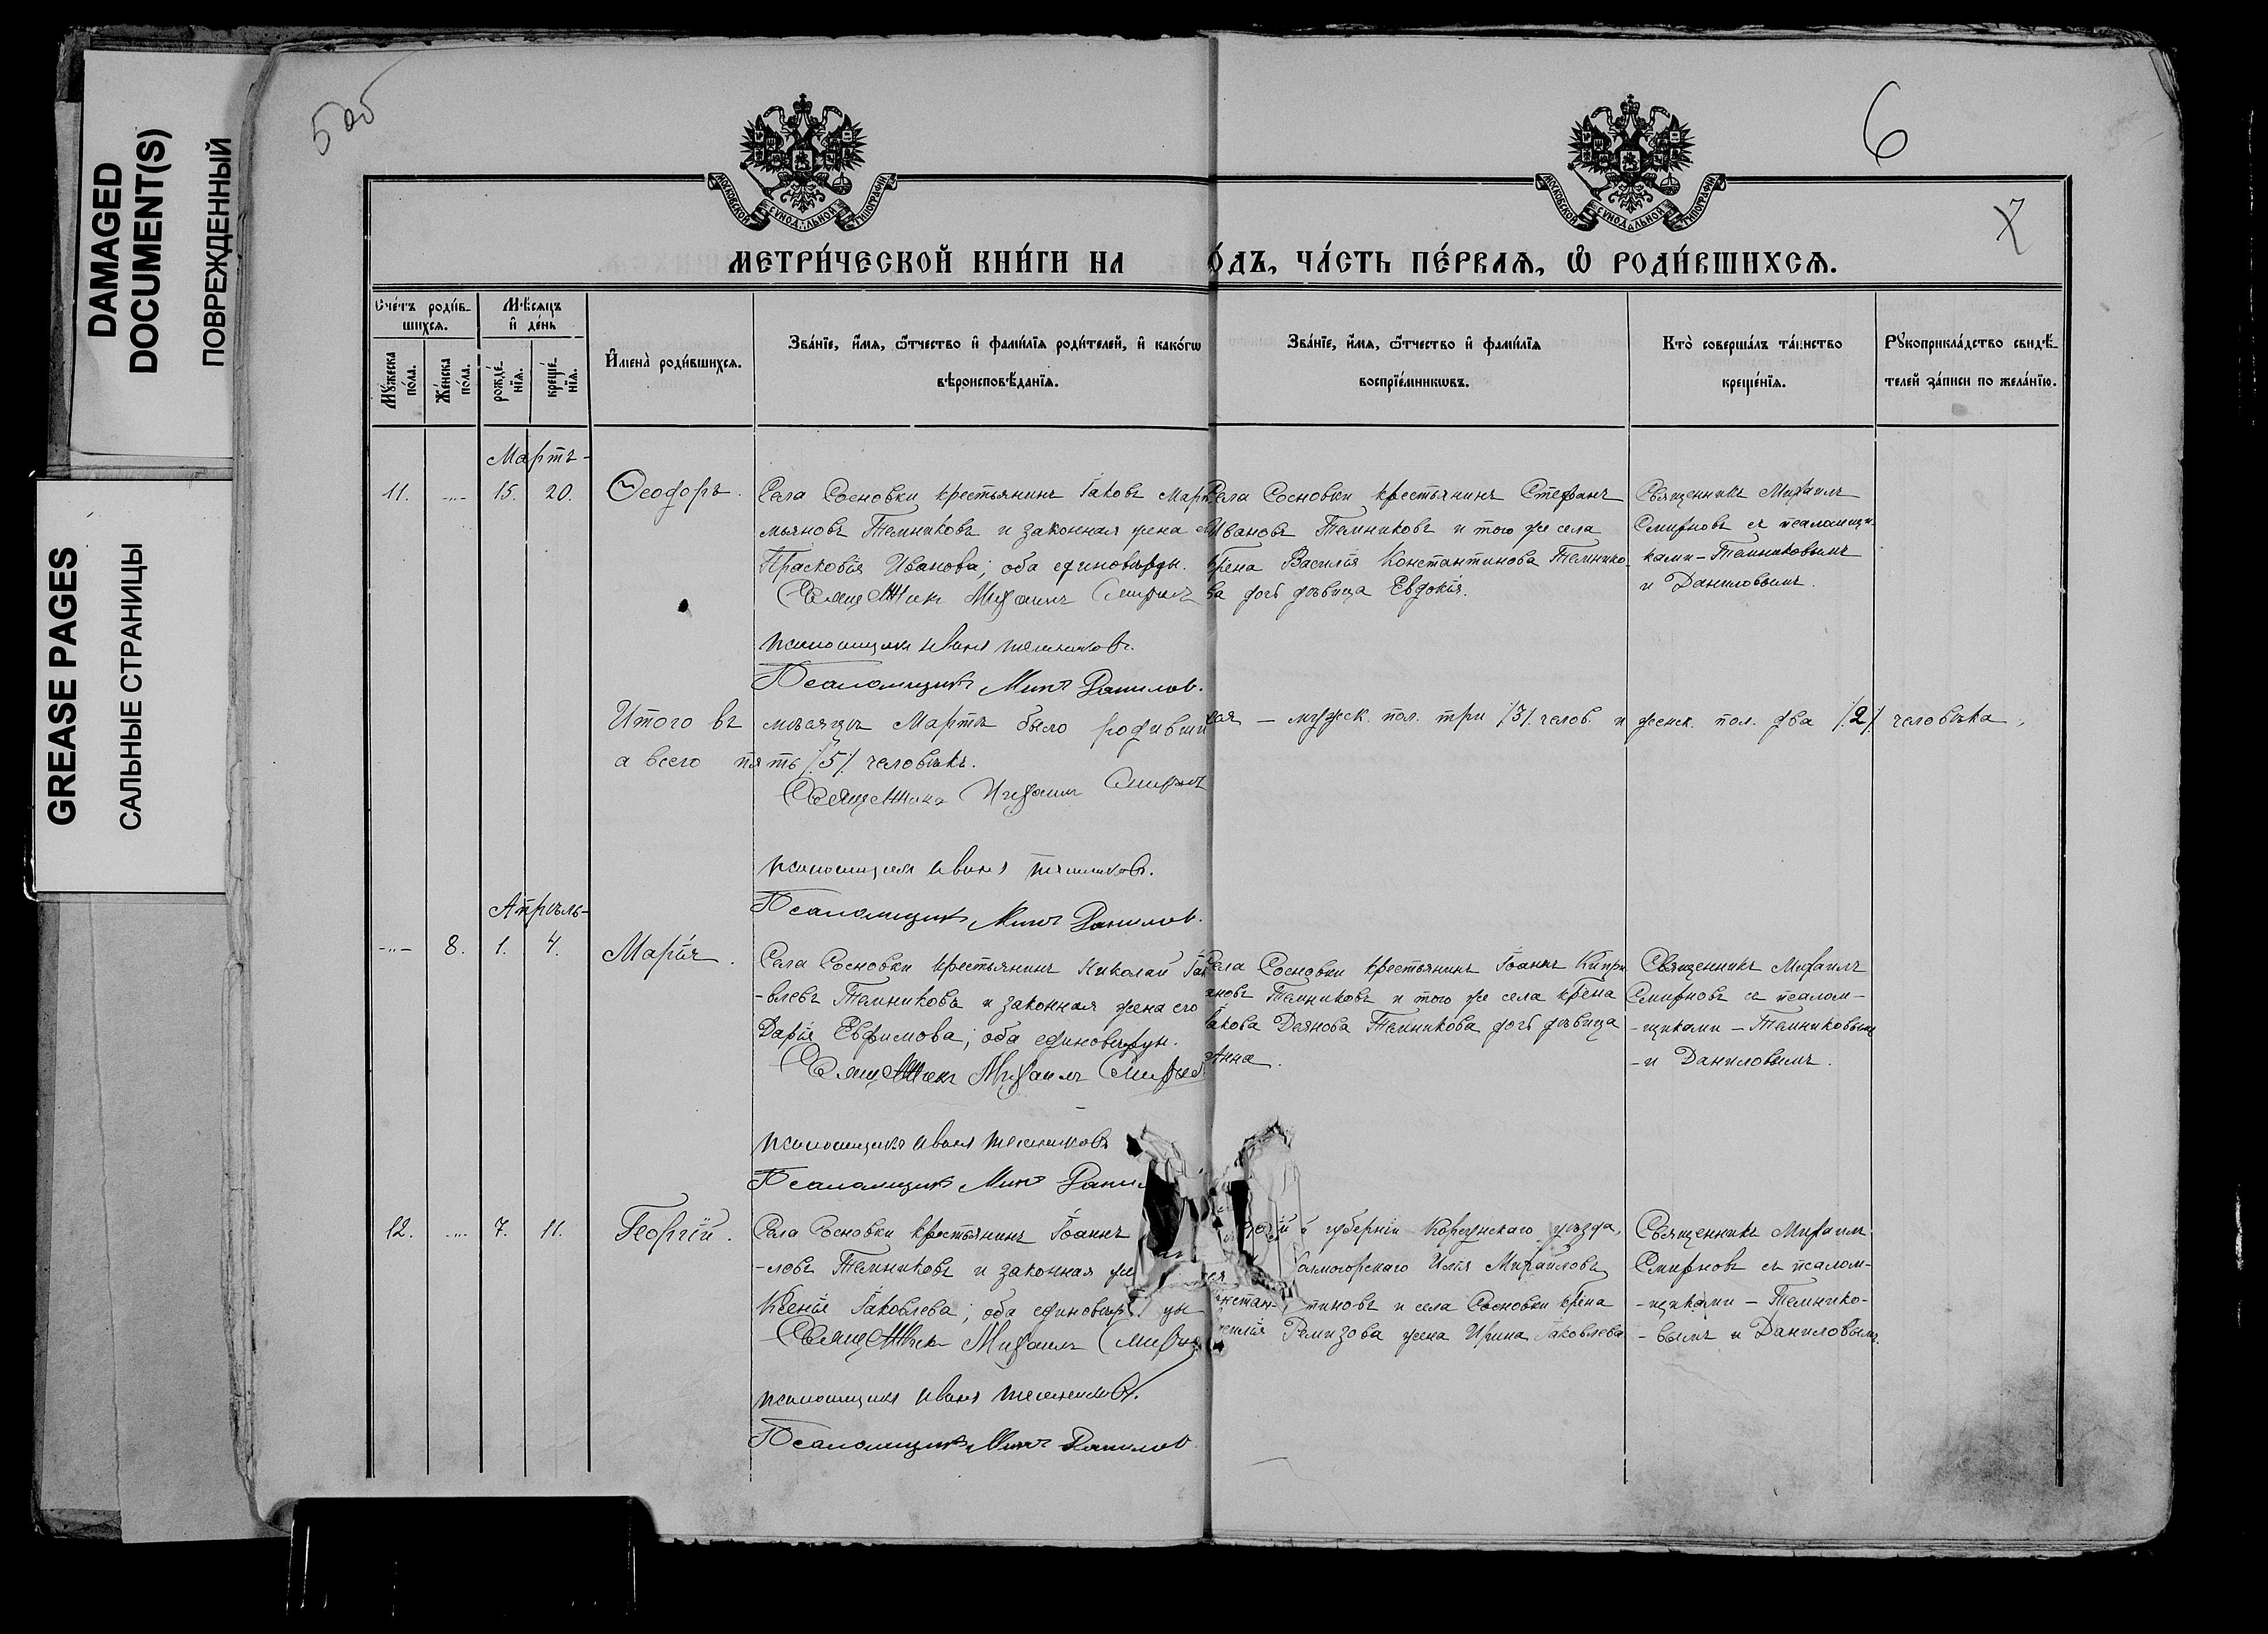 DAMAGED
DOCUMENT(S)
ПОВРЕЖДЕННЫЙ
GREASE PAGES
САЛЬНЫЕ СТРАНИЦЫ
5 об
6
7
МОСКОВСКОЙ СѴНОДАЛЬНОЙ ТИПОГРАФІИ
МОСКОВСКОЙ СѴНОДАЛЬНОЙ ТИПОГРАФІИ
МЕТРИ́ЧЕСКОЙ КНИ́ГИ НА О́ДЪ, ЧА́СТЬ ПЕ́РВАѦ, Ѡ҆ РОДИ́ВШИХСѦ.
Сче́тъ роди́в-
шихсѧ.
Мꙋ́жеска по́ла.
Же́нска по́ла.
Мѣ́сѧцъ
и҆ де́нь
рожде́-
нїѧ.
креще́-
нїѧ.
И҆мена̀ роди́вшихсѧ.
Зва́нїе, и҆́мѧ, ѻ҆́тчество и҆ фами́лїѧ роди́телей, и҆ како́гѡ
вѣроисповѣ́данїѧ.
Зва́нїе, и҆́мѧ, ѻ҆́тчество и҆ фами́лїѧ
воспрїе́мникѡвъ.
Кто̀ соверша́лъ та́инство
креще́нїѧ.
Рꙋкоприкла́дство свидѣ́-
телей за́писи по жела́нїю.
Мартъ-
11. -"- 15. 20. Ѳеодоръ.
Села Сосновки крестьянинъ Іаковъ Март
мьяновъ Темниковъ и законная жена
Прасковія Иванова; оба единоверцы.
Священникъ Михаилъ Смирновъ
псаломщикъ иванъ темниковъ.
Псаломщикъ Данилов.
Села Сосновки крестьянинъ Стефанъ
Ивановъ Темниковъ и того же села
кр͠ена Василія Константинова Темнико
ва дочь дѣвица Евдокія.
Священникъ Михаилъ
Смирновъ съ псаломщи-
ками-Темниковымъ
и Даниловымъ.
Итого въ мѣсяцѣ Мартѣ было родивши хся – мужск. пол. три /3/ челов. и женск. пол. два /2/ человѣка,
а всего пять /5/ человѣкъ.
Священникъ Михаилъ Смирновъ
псаломщикъ иванъ темниковъ.
Псаломщикъ Данилов.
Апрѣль-
-"- 8. 1. 4. Марія.
Села Сосновки крестьянинъ Николай Іак
-влевъ Темниковъ и законная жена его
Дарія Евфимова; оба единоверцы.
Священникъ Михаилъ Смирнов
псаломщикъ иванъ темниковъ
Псаломщикъ Данил
Села Сосновки крестьянинъ Іоаннъ Кипри
ановъ Темниковъ и того же села кр͠ена
Іакова Деянова Темникова дочь дѣвица
Анна.
Священникъ Михаилъ
Смирновъ съ псалом-
-щиками-Темниковымъ
-и Даниловымъ.
12. -"- 7. 11. Георгій.
Села Сосновки крестьянинъ Іоаннъ
-ловъ Темниковъ и законная же
Ксенія Іаковлева; оба единоверцы
Священникъ Михаилъ Смирн
псаломщикъ иванъ темниковъ.
Псаломщикъ Данилов
губерніи Корсунскаго уѣзда,
Илія Михайловъ
нстан- тиновъ и села Сосновки кр͠ена
силія Ремизова жена Ирина Іаковлева
Священникъ Михаилъ
Смирновъ съ псалом-
-щиками-Темнико-
-вымъ и Даниловымъ.